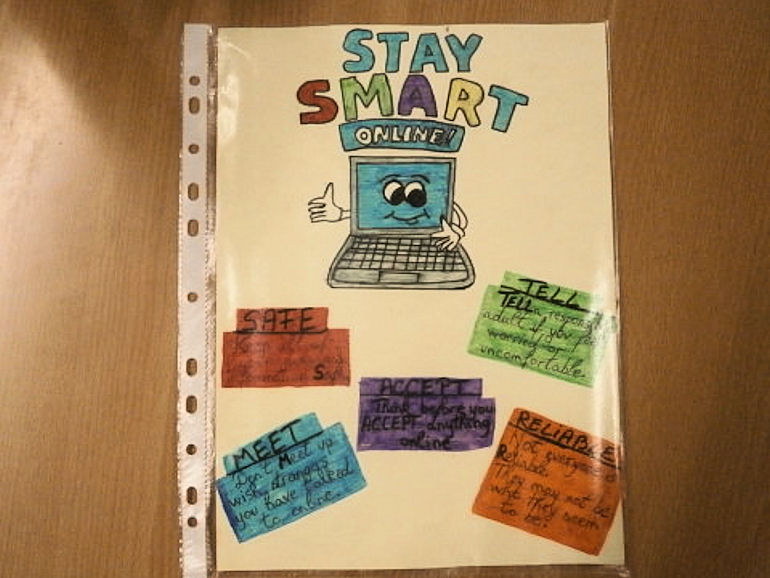 STAY
SMART
ONLINE!
SAFE
Safe
MEET
Don't Meet up
with strangers
you have talked
to online.
ACCEPT
Think before you
ACCEPT anything
online
TELL
TELL a
adult if you feel
worried or
uncomfortable.
RELiABLE
Not everyone is
Reliable
They may not be
who they seem
to be.